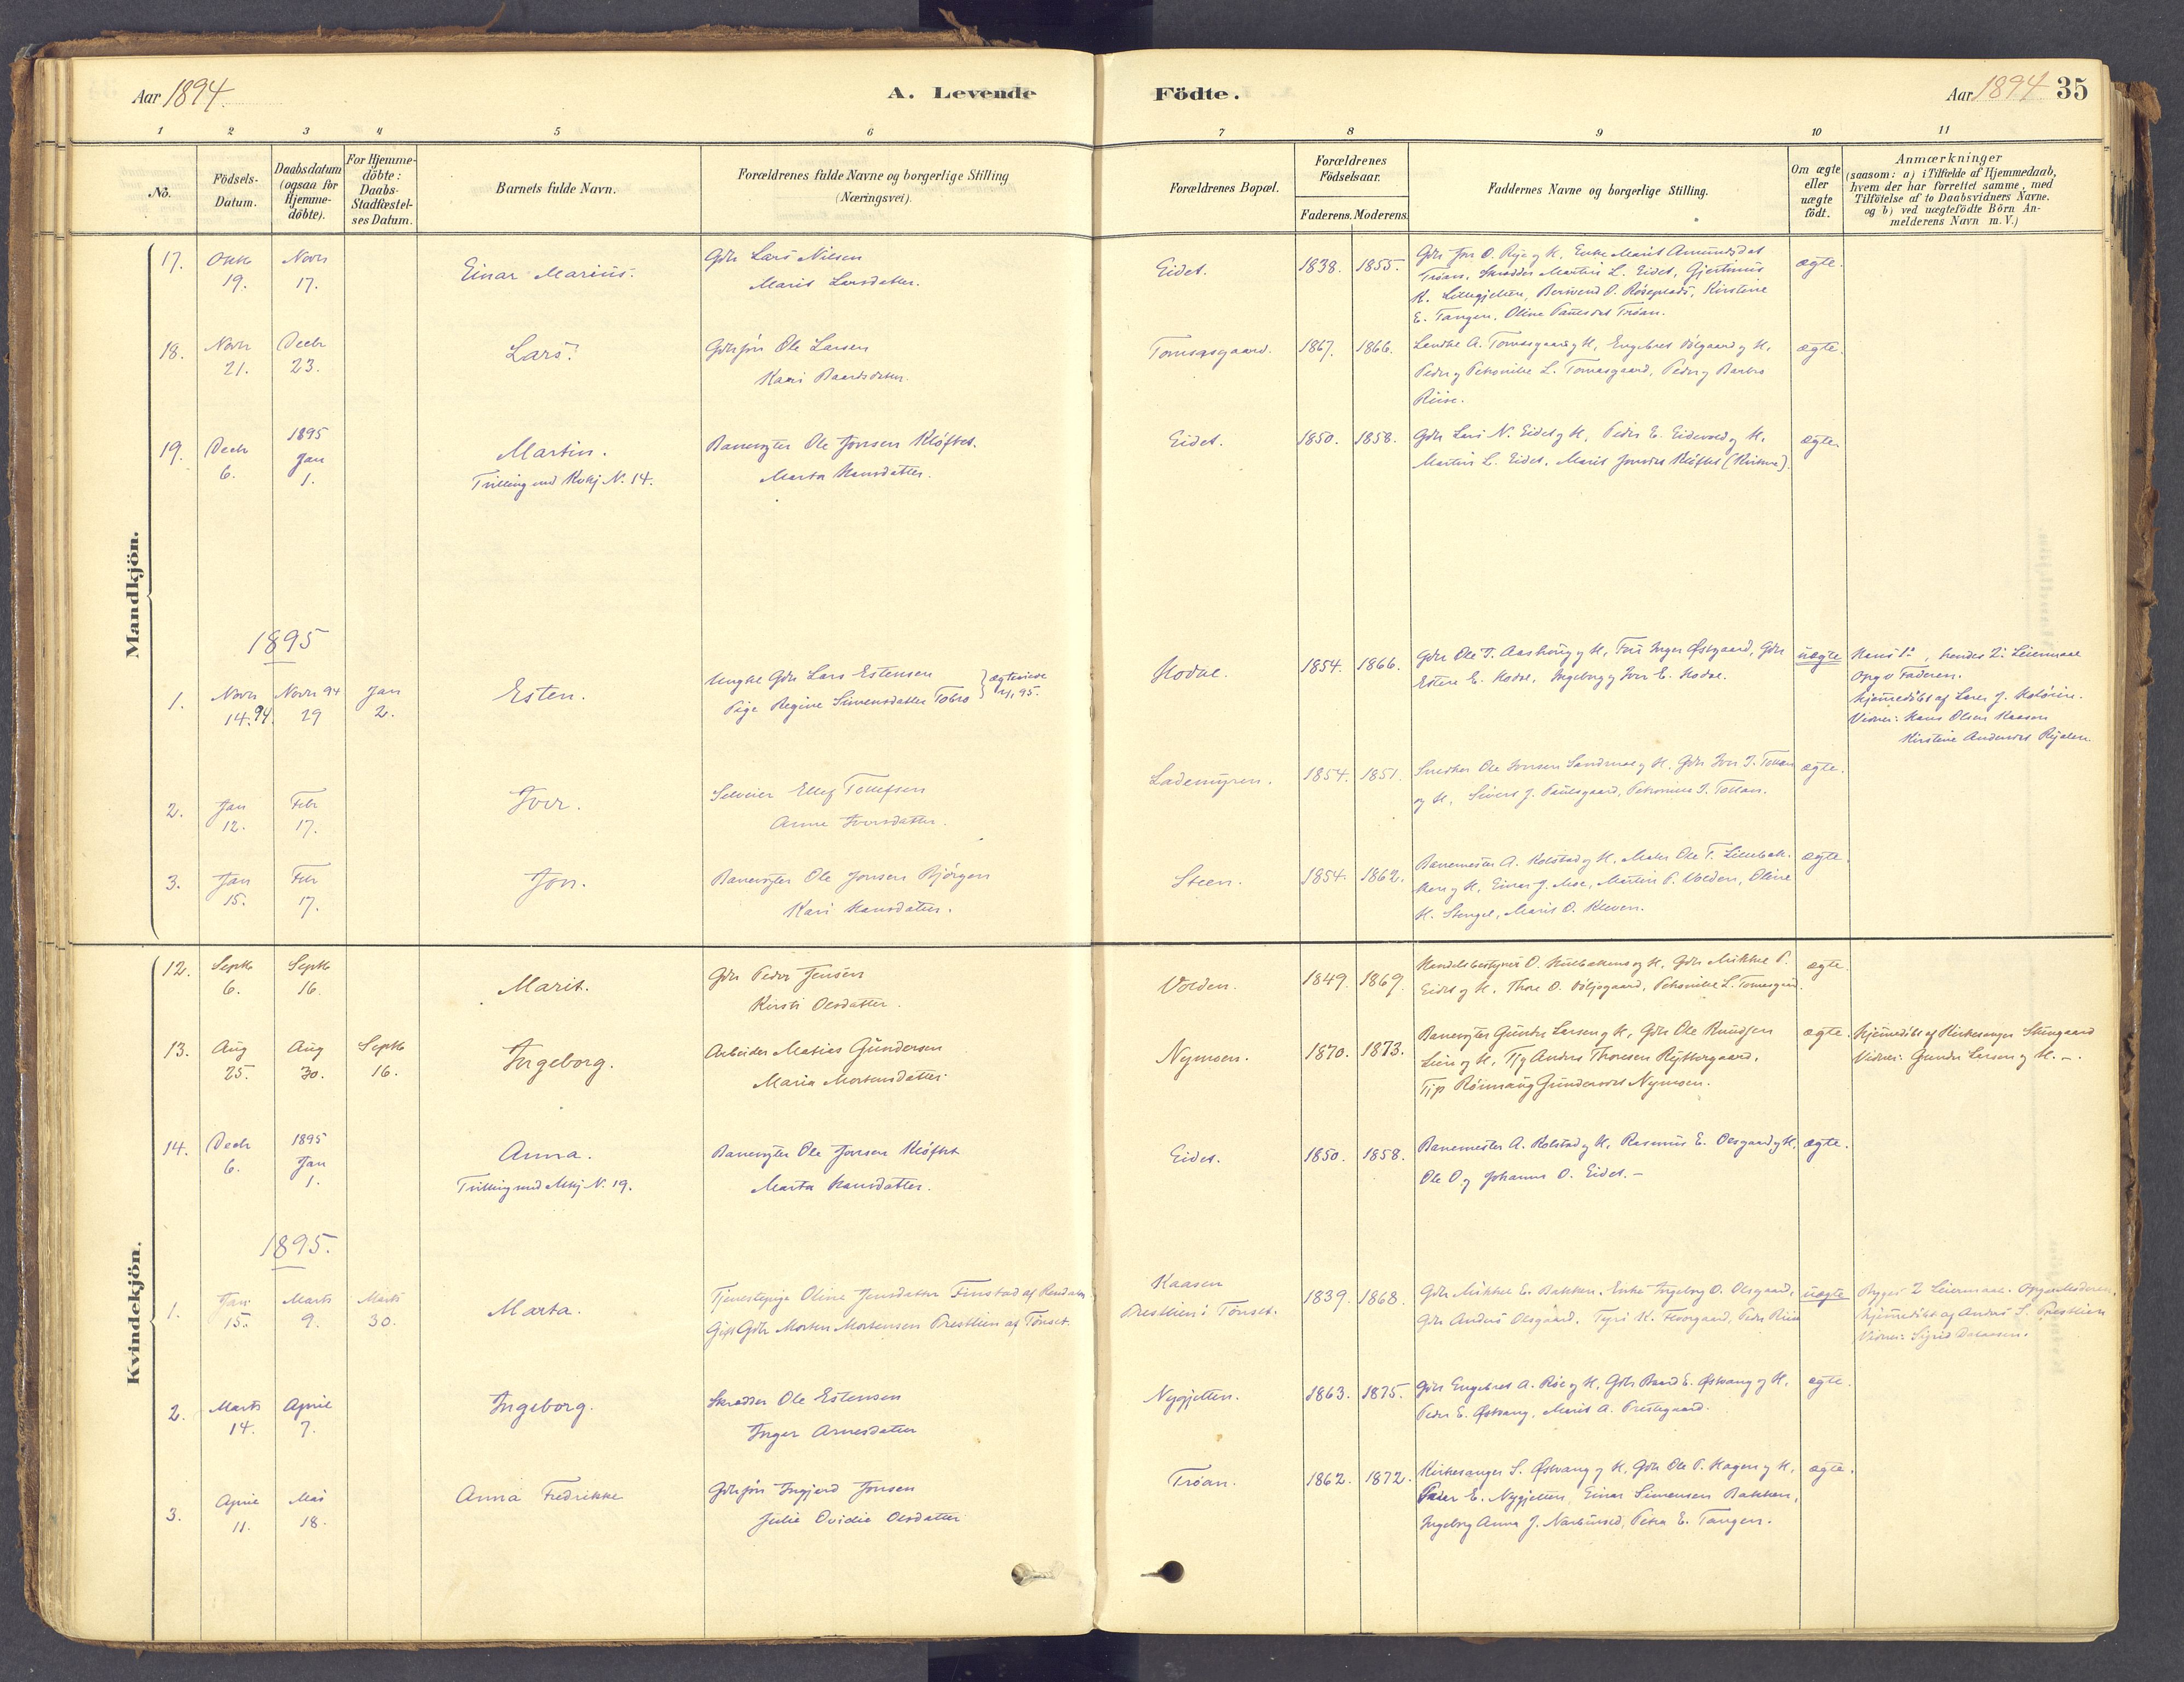 Aar 1894.
A. Levende
Födte.
Aar 1894 35
1 2 3 4 5 6 7 8 9 10 11
No.
Födsels-Datum.
Daabsdatum (ogsaa for Hjemme-döbte).
For Hjemme-döbte: Daabs-Stadfæstel-ses Datum.
Barnets fulde Navn.
Forældrenes fulde Navne og borgerlige Stilling
(Næringsvei).
Forældrenes Bopæl.
Forældrenes Födselsaar.
Faderens. Moderens.
Faddernes Navne og borgerlige Stilling.
Om ægte eller uægte födt.
Anmærkninger
(saasom: a) i Tilfælde af Hjemmedaab,
hvem der har forrettet samme, med
Tilföielse af to Daabsvidners Navne.
og b) ved uægtefödte Börn An-
melderens Navn m.V.)
Mandkjön.
17. Oktb 19. Novr 17. Einar Marius. Gdr Lars Nilsen
Marit Larsdatter.
Eidet. 1838. 1855. Gdr Jon O. Rye og H, Enke Marit Amundsdat
Tröan, Skrædder Martin L. Eidet, Gjertinus
K. Lillegjelten,
E. Tangen, Oline Paulsdat Tröan.
ægte.
18. Novr 21. Decbr 23. Lars. Gdrsön Ole Larsen
Kari Baardsdatter.
Tomasgaard. 1867. 1866. A. Tomasgaard og H, Engebret
Peder og Petronille L. Tomasgaard, Peder og Barbro
Riise.
ægte.
19. Decbr 6. 1895 Jan 1. Martin.
Tvilling med Kvkj N. 14.
Banevogter Ole Jonsen Klöftet.
Marta Hansdatter.
Eidet. 1850. 1858. Gdr Lars N. Eidet og H, Peder E. Eidsvold og H.
Martin L. Eidet. Marit Jonsdat Klöftet
ægte.
1895
1. Novr 14. 94. Novr 94 29 Jan 2. Esten. Ungkl Gdr Lars Estensen
Pige Regine Simensdatter Tobro
Hodal. 1854. 1866. Gdr Ole T. Aashoug og H, Inger Østgaard, Gdr
Esten E. Hodal, Ingeborg og Iver E. Hodal.
uægte Hans 1ste, hendes 2. Leiermaal
Opg v Faderen.
Hjemmedöbt af Lars J.
Vidner: Hans Olsen Kaasen
Kirstine Andersdat
2. Jan 12. Febr 17. Iver. Selveier Ellef Tollefsen
Anne Iversdatter.
Lademyren. 1854. 1851. Snedker Ole Iversen Sandmæl og H. Gdr Iver T. Tollan
og H, Sivert J. Paulsgaard, Petronille T. Tollan.
ægte.
3. Jan 15. Febr 17. Jon. Banevogter Ole Jonsen Bjørgen
Kari Hansdatter.
Steen. 1854. 1862. Banemester A. Kolstad og H. Maler Ole T. Lillebak-
ken og H, Einar J. Moe, Martin P. Volden, Oline
H. Stengel, Marit O. Kleven.
ægte.
Kvindekjön.
12. Septb 6. Septb 16. Marit. Gdr Peder Jensen
Kirsti Olsdatter.
Volden. 1849. 1869. Handelsbestyrer O. og H, Gdr Mikkel P.
Eidet og H. Thore O. Petronille L. Tomasgaard.
ægte.
13. Aug 25. Aug 30. Septb 16. Ingeborg. Arbeider Matias Gundersen
Maria Mortensdatter.
Nymoen. 1870. 1873. Banevogter Gunder Larsen og H, Gdr Ole Knudsen
og H, Anders Thoresen
Nymoen.
ægte. Hjemmedöbt af Kirkesanger Stuugaard
Vidner: Gunder Larsen og H. -.
14. Decbr 6. 1895 Jan 1. Anna.
Tvilling med Mkj N. 19.
Banevogter Ole Jonsen Klöftet
Marta Hansdatter.
Eidet. 1850. 1858. Banemester A. Kolstad og H, Rasmus E. Olsgaard og H,
Ole O. og Johanne O. Eidet. -
ægte.
1895.
1. Jan 15. Marts 9. Marts 30. Marta. Tjenestepige Oline Jensdatter Finstad af Rendalen
Gift Gdr Morten Mortensen Prestlien af Tönset.
Kaasen
Prestlien i Tönset.
1839. 1868. Gdr Mikkel E. Bakken. Enke Ingeborg O. Olsgaard,
Gdr Anders Olsgaard. Tyri K. Floorgaard, Peder Riise
uægte Begges 2 Leiermaal. Opg. Moderen.
Hjemmedöbt af Anders S. Prestlien
Vidner: Sigrid
2. Marts 14. April 7. Ingeborg. Skrædder Ole Estensen
Inger Arnesdatter
Nygjelten. 1863. 1875. Gdr Engebret A. Röe og H, Gdr Baard E. Østvang og H.
Peder E. Østvang, Marit A. Prestegaard.
ægte.
3. April 11. Mai 18. Anna Fredrikke Gdrsön Ingjard Jonsen
Julie Ovidie Olsdatter
Tröan. 1862. 1872. Kirkesanger S. Østvang og H, Gdr Ole P. Hagen og H,
Peder E. Nygjelten, Einar Simensen Bakken,
Ingeborg Anna J. Narbuvold, Petra E. Tangen.
ægte.